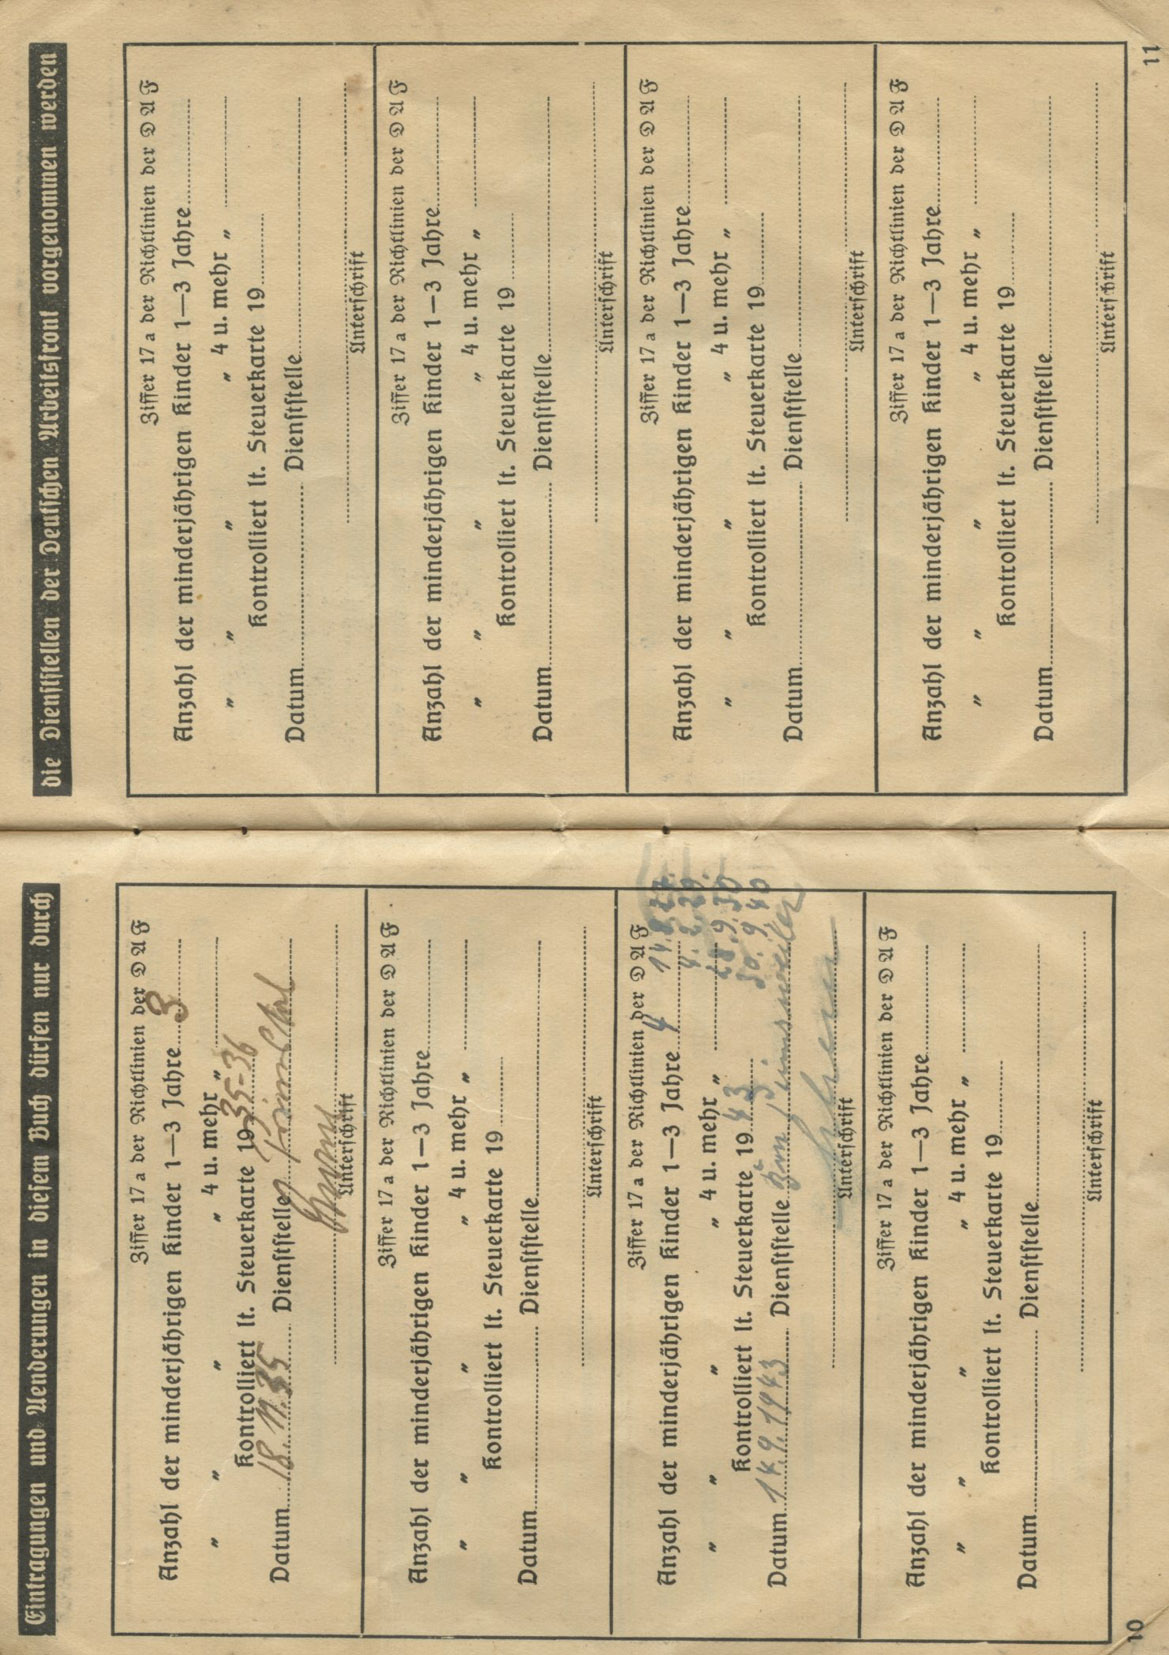 Eintragungen und Aenderungen in diesem Buch dürfen nur durch
Ziffer 17a der Richtlinien der DAF
Anzahl der minderjährigen Kinder 1—3 Jahre 3
" " " " 4 u. mehr "
Kontrolliert lt. Steuerkarte 1935-36
Datum 18.11.35 Dienststelle
Unterschrift
Ziffer 17a der Richtlinien der DAF
Anzahl der minderjährigen Kinder 1—3 Jahre
" " " " 4 u. mehr "
Kontrolliert lt. Steuerkarte 19
Datum Dienststelle
Unterschrift
Ziffer 17a der Richtlinien der DAF
Anzahl der minderjährigen Kinder 1—3 Jahre 4 14.8.27.
" " " " 4 u. mehr " 4.2.29.
28.9.30
Kontrolliert lt. Steuerkarte 1943 30.9.40
Datum 14.9.1943 Dienststelle
Unterschrift
Ziffer 17a der Richtlinien der DAF
Anzahl der minderjährigen Kinder 1—3 Jahre
" " " " 4 u. mehr "
Kontrolliert lt. Steuerkarte 19
Datum Dienststelle
Unterschrift
10
die Dienststellen der Deutschen Arbeitsfront vorgenommen werden
Ziffer 17a der Richtlinien der DAF
Anzahl der minderjährigen Kinder 1—3 Jahre
" " " " 4 u. mehr "
Kontrolliert lt. Steuerkarte 19
Datum Dienststelle
Unterschrift
Ziffer 17a der Richtlinien der DAF
Anzahl der minderjährigen Kinder 1—3 Jahre
" " " " 4 u. mehr "
Kontrolliert lt. Steuerkarte 19
Datum Dienststelle
Unterschrift
Ziffer 17a der Richtlinien der DAF
Anzahl der minderjährigen Kinder 1—3 Jahre
" " " " 4 u. mehr "
Kontrolliert lt. Steuerkarte 19
Datum Dienststelle
Unterschrift
Ziffer 17a der Richtlinien der DAF
Anzahl der minderjährigen Kinder 1—3 Jahre
" " " " 4 u. mehr "
Kontrolliert lt. Steuerkarte 19
Datum Dienststelle
Unterschrift
11